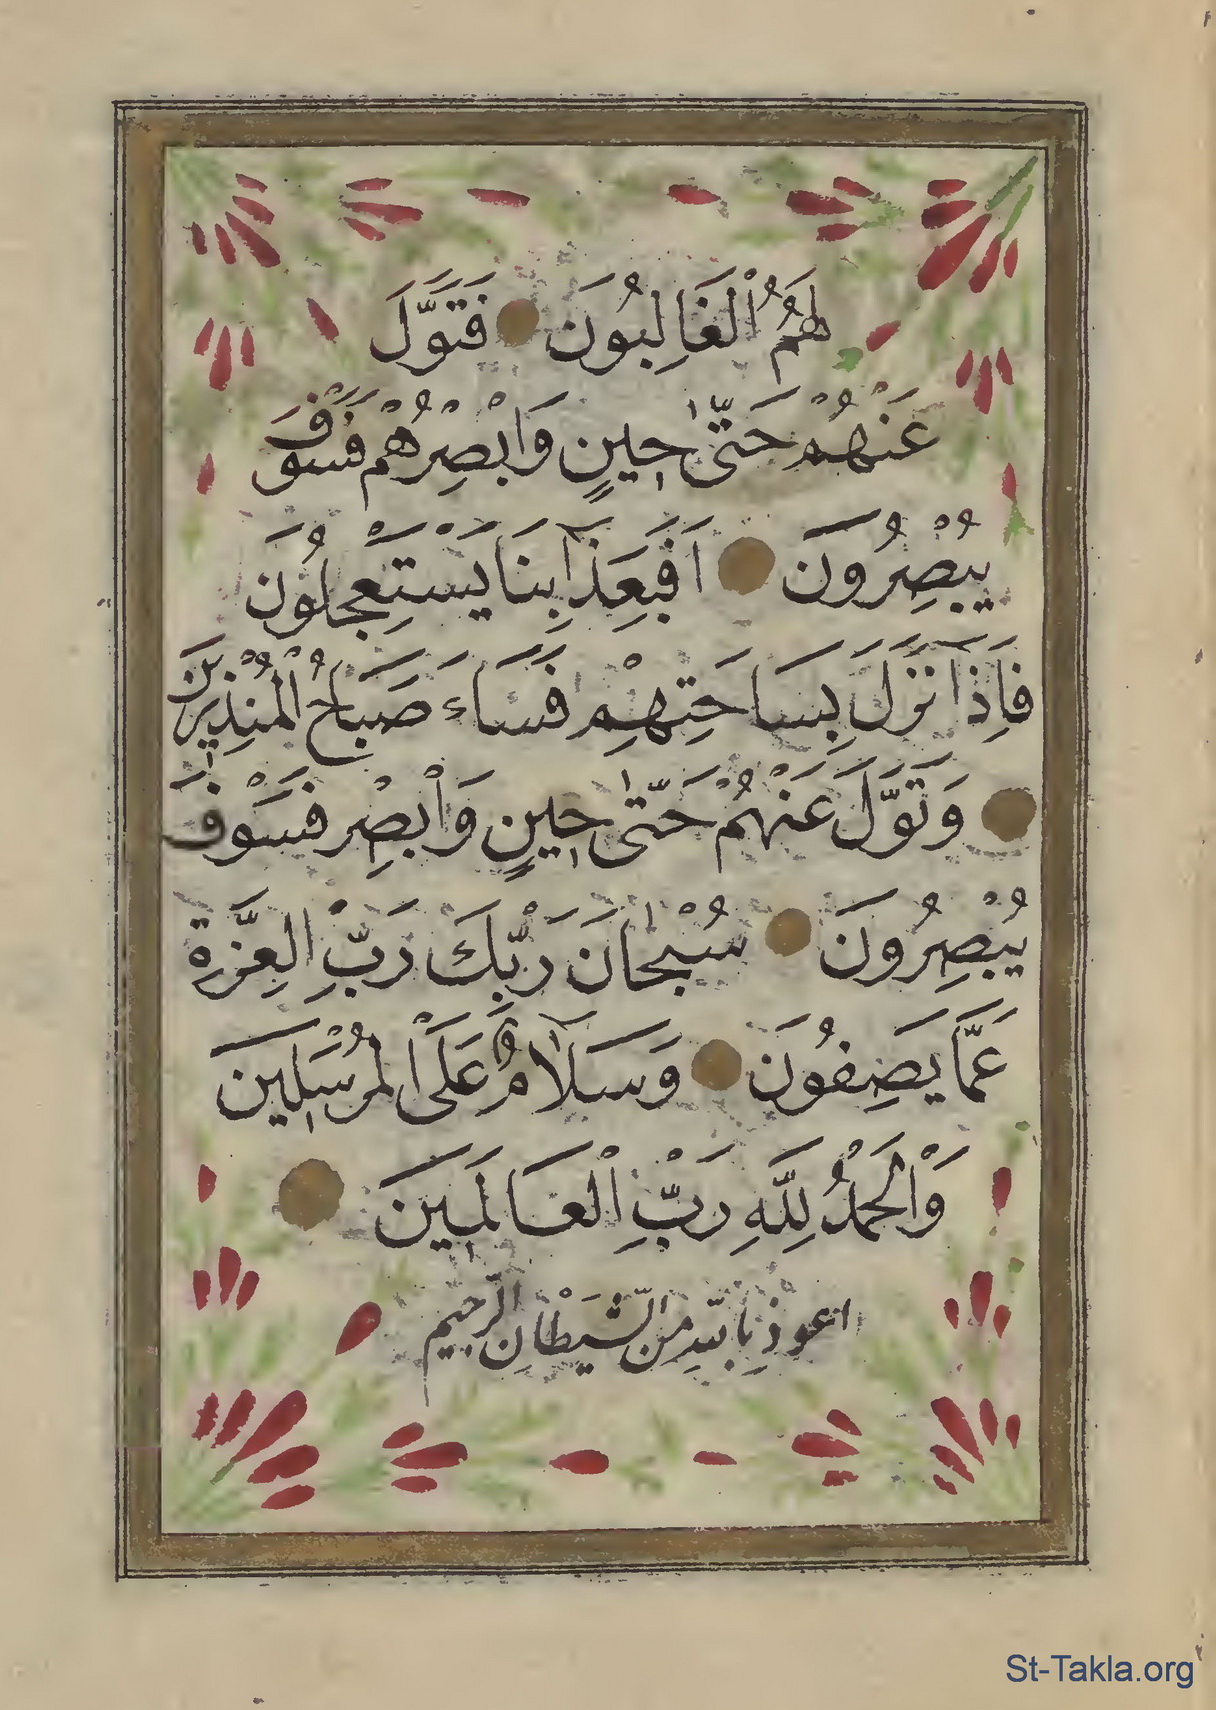 لَهُمُ الْغَالِبُونَ فَتَوَلَّ
عَنْهُمْ حَتّٰى حِينٍ وَاَبْصِرْهُمْ فَسَوْفَ
يُبْصِرُونَ اَفَبِعَذَابِنَا يَسْتَعْجِلُونَ
فَاِذَا نَزَلَ بِسَاحَتِهِمْ فَسَاءَ صَبَاحُ الْمُنْذَرِينَ
وَتَوَلَّ عَنْهُمْ حَتّٰى حِينٍ وَاَبْصِرْ فَسَوْفَ
يُبْصِرُونَ سُبْحَانَ رَبِّكَ رَبِّ الْعِزَّةِ
عَمَّا يَصِفُونَ وَسَلَامٌ عَلَى الْمُرْسَلِينَ
وَالْحَمْدُ لِلَّهِ رَبِّ الْعَالَمِينَ
اعوذ بِاللهِ مِنَ الشَّيْطَانِ الرَّجِيمِ
St-Takla.org